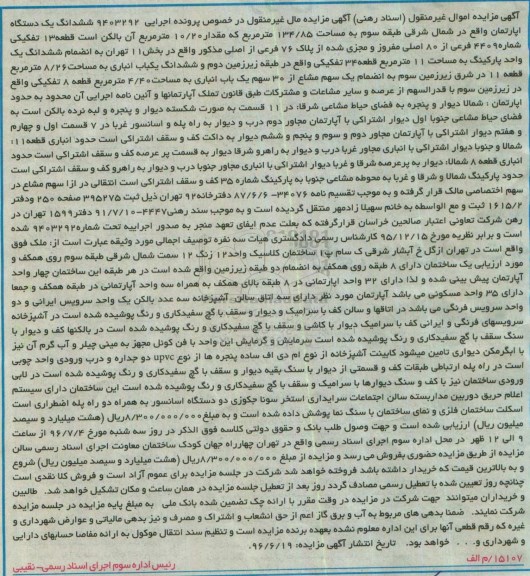 آگهی مزایده اموال غیرمنقول (اسناد رهنی) آگهی مزایده مال غیرمنقول در خصوص پرونده اجرایی ۹۴۰۳۲۹۲ ششدانگ یک دستگاه
آپارتمان واقع در شمال شرقی طبقه سوم به مساحت ۱۳۴/۸۵ مترمربع که مقدار ۱۰/۲۰ مترمربع آن بالکن است قطعه ۱۳ تفکیکی
شماره ۴۴۰۹ فرعی از ۸۰ اصلی مفروز و مجزی شده از پلاک ۷۶ فرعی از اصلی مذکور واقع در بخش ۱۱ تهران به انضمام ششدانگ یک
واحد پارکینگ به مساحت ۱۱ مترمربع قطعه ۳۴ تفکیکی واقع در طبقه زیرزمین دوم و ششدانگ یکباب انباری به مساحت ۸/۲۶ مترمربع
قطعه ۱۱ در شرق زیرزمین سوم به انضمام یک سهم مشاع از ۳۰ سهم یک باب انباری به مساحت ۴/۴۰ مترمربع قطعه ۸ تفکیکی واقع
در زیرزمین سوم با قدرالسهم از عرصه و سایر مشاعات و مشترکات طبق قانون تملک آپارتمانها و آئین نامه اجرایی آن محدود به حدود
آپارتمان : شمالا دیوار و پنجره به فضای حیاط مشاعی شرقا: در ۱۱ قسمت به صورت شکسته دیوار و پنجره و لبه نرده بالکن است به
فضای حیاط مشاعی جنوبا اول دیوار اشتراکی با آپارتمان مجاور دوم درب و دیوار به راه پله و آسانسور غربا در ۷ قسمت اول و چهارم
و هفتم دیوار اشتراکی با آپارتمان مجاور دوم و سوم و پنجم و ششم دیوار به داکت کف و سقف اشتراکی است حدود انباری قطعه ۱۱:
شمالا و جنوبا دیوار اشتراکی با انباری مجاور غربا درب و دیوار به راهرو شرقا دیوار به قسمت پر عرصه کف و سقف اشتراکی است حدود
انباری قطعه ۸ شمالا: دیوار به پرعرصه شرقا و غربا دیوار اشتراکی با انباری مجاور جنوبا درب و دیوار به راهرو کف و سقف اشتراکی است
حدود پارکینگ شمالا و شرقا و غربا به محوطه مشاعی جنوبا به پارکینگ شماره ۳۵ کف و سقف اشتراکی است انتقالی در ازا سهم مشاع در
سهم اختصاصی مالک قرار گرفته و به موجب تقسیم نامه ۳۴۰۷۶- ۸۷/۶/۶ دفترخانه ۹۲ تهران ذیل ثبت ۳۹۵۲۷۵ صفحه ۲۵۰ دفتر
۱۶۱۵/۲ ثبت و مع الواسطه به خانم سهیلا زادمهر منتقل گردیده است و به موجب سند رهنی ۴۴۴۷-۹۱/۷/۱۰ دفتر ۱۵۹۹ تهران در
رهن شرکت تعاونی اعتبار صالحین خراسان قرار گرفته که بعلت عدم ایفای تعهد منجر به صدور اجراییه تحت شماره ۹۴۰۳۲۹۲ شده
است و برابر نظریه مورخ ۹۵/۱۲/۱۵ کارشناس رسمی دادگستری هیات سه نفره توصیف اجمالی مورد وثیقه عبارت است از: ملک فوق
واقع است در تهران ازگل خ آبشار شرقی ک سام پ۱ ساختمان کلاسیک واحد ۱۲ زنگ ۱۲ سمت شمال شرقی طبقه سوم روی همکف و
مورد ارزیابی یک ساختمان دارای ۸ طبقه روی همکف به انضمام دو طبقه زیرزمین واقع شده است در هر طبقه این ساختمان چهار واحد
آپارتمان پیش بینی شده و لذا دارای ۳۲ واحد آپارتمانی در ۸ طبقه بالای همکف به همراه سه واحد آپارتمانی در طبقه همکف و جمعا
دارای ۳۵ واحد مسکونی می باشد آپارتمان مورد نظر دارای سه اتاق سالن آشپزخانه سه عدد بالکن یک واحد سرویس ایرانی و دو
واحد سرویس فرنگی می باشد در اتاقها و سالن کف با سرامیک و دیوار و سقف با گچ سفیدکاری و رنگ پوشیده شده است در آشپزخانه
سرویسهای فرنگی و ایرانی کف با سرامیک دیوار با کاشی و سقف با گچ سفیدکاری و رنگ پوشیده شده است در بالکنها کف و دیوار با
سنگ سقف با گچ سفیدکاری و رنگ پوشیده شده است سرمایش و گرمایش این واحد با فن کوئل مجهز به مینی چیلر و آب گرم آن نیز
با آبگرمکن دیواری تامین میشود کابینت آشپزخانه از نوع ام دی اف ساده پنجره ها از نوع upvc دو جداره و درب ورودی واحد چوبی
است در راه پله ارتباطی طبقات کف و قسمتی از دیوار با سنگ بقیه دیوار و سقف با گچ سفیدکاری و رنگ پوشیده شده است در لابی
ورودی ساختمان نیز با کف و سنگ دیوارها با سرامیک و سقف با گچ سفیدکاری و رنگ پوشیده شده است این ساختمان دارای سیستم
اعلام حریق دوربین مداربسته سالن اجتماعات سرایداری استخر سونا جکوزی دو دستگاه آسانسور به همراه دو راه پله اضطراری است
اسکلت ساختمان فلزی و نمای ساختمان با سنگ نما پوشش داده شده است و به مبلغ ۸/۳۰۰/۰۰۰/۰۰۰ ریال (هشت میلیارد و سیصد
میلیون ریال) ارزیابی شده است و جهت وصول طلب بانک و حقوق دولتی کلاسه فوق الذکر در روز سه شنبه مورخ ۹۶/۷/۴ از ساعت
۹ الی ۱۲ ظهر در محل اداره سوم اجرای اسناد رسمی واقع در تهران چهارراه جهان کودک ساختمان معاونت اجرای اسناد رسمی سالن
مزایده از طریق مزایده حضوری بفروش می رسد و مزایده از مبلغ ۸/۳۰۰/۰۰۰/۰۰۰ ریال (هشت میلیارد و سیصد میلیون ریال) شروع
و به بالاترین قیمت که خریدار داشته باشد فروخته خواهد شد شرکت در جلسه مزایده برای عموم آزاد است و فروش کلا نقدی است
چنانچه روز تعیین شده با تعطیل رسمی مصادف گردد روز بعد از تعطیل جلسه مزایده در همان ساعت و مکان تشکیل خواهد شد. طالبین
و خریداران میتوانند جهت شرکت در مزایده در وقت مقرر با ارائه چک تضمین شده بانک ملی به مبلغ پایه مزایده در جلسه مزایده
شرکت نمایند. ضمنا بدهی های مربوط به آب و برق گاز اعم از حق انشعاب و اشتراک و مصرف و نیز بدهی مالیاتی و عوارض شهرداری و
غیره که رقم قطعی آنها برای این اداره معلوم نشده بعهده برنده مزایده است و تنظیم سند انتقال موکول به ارائه مفاصا حسابهای دارایی
و شهرداری و... خواهد بود. تاریخ انتشار آگهی مزایده: ۹۶/۶/۱۹.
۱۵۱۰۷/م الف
رئیس اداره سوم اجرای اسناد رسمی- نقیبی